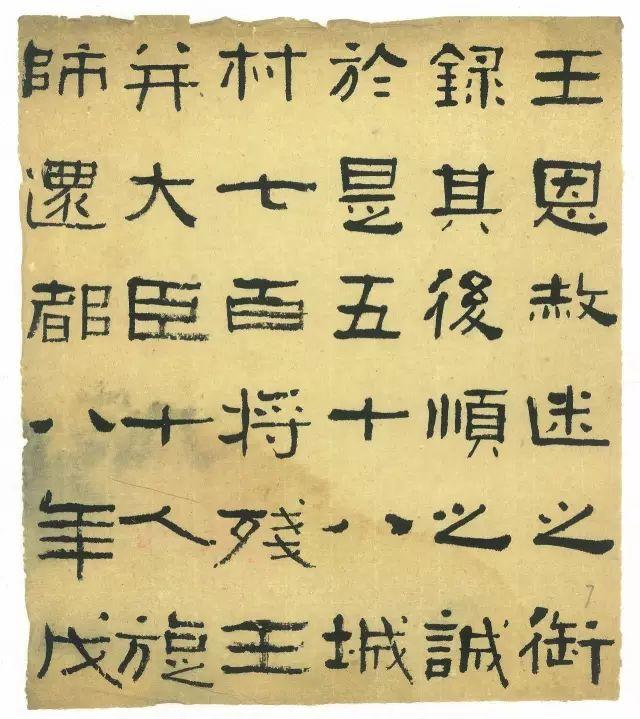 王恩赦迷之御
録其後順之誠
於是五十八城
村七百将残王
并大臣十人旋
師還都八年戊
7